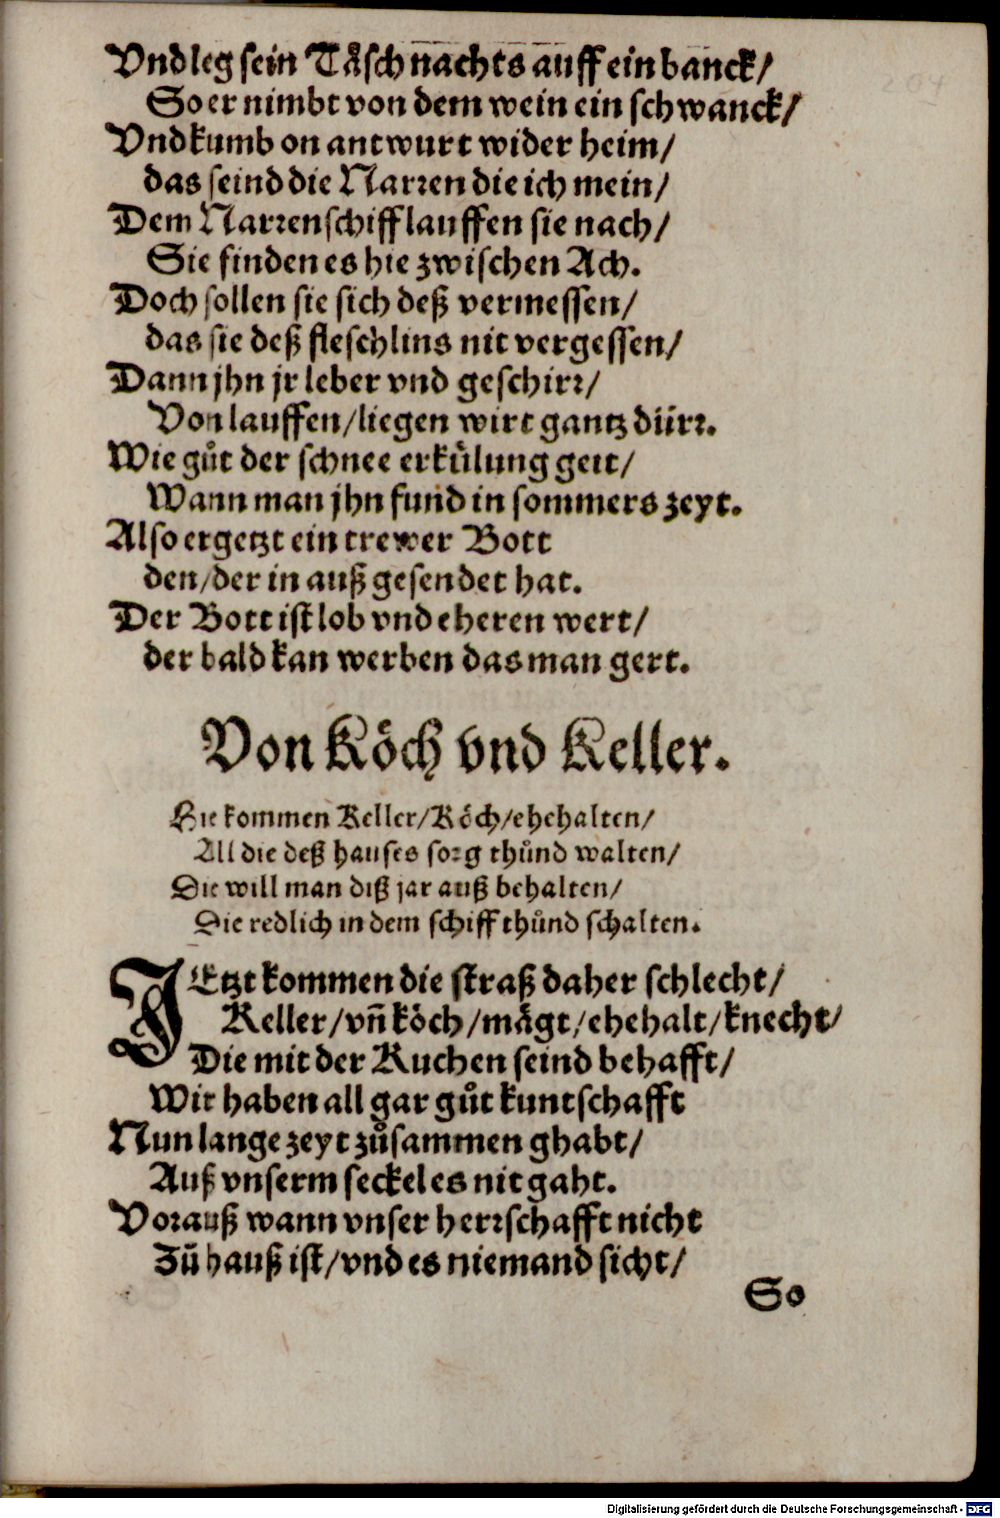 Vnd leg sein Täſch nachts auff ein banck/
So er nimbt von dem wein ein ſchwanck/
Vnd kumb on antwurt wider heim/
das ſeind die Narꝛen die ich mein/
Dem Narꝛenſchiff lauffen ſie nach/
Sie finden es hie zwiſchen Ach.
Doch ſollen ſie ſich deß vermeſſen/
das ſie deß fleſchlins nit vergeſſen/
Dann jhn jr leber vnd geſchirꝛ/
Von lauffen/liegen wirt gantz dürꝛ.
Wie gůt der ſchnee erkülung geit/
Wann man jhn fund in ſommers zeyt.
Alſo ergetzt ein trewer Bott
den/der in auß geſendet hat.
Der Bott iſt lob vnd eheren wert/
der bald kan werben das man gert.
Von Köch vnd Keller.
Hie kommen Keller/Köch/ehehalten/
All die deß hauſes soꝛg thůnd walten/
Die will man diß jar auß behalten/
Die redlich in dem ſchiff thůnd ſchalten.
JEtzt kommen die ſtraß daher ſchlecht/
Keller/vñ köch/mägt/ehehalt/knecht/
Die mit der Kuchen ſeind behafft/
Wir haben all gar gůt kuntſchafft
Nun lange zeyt zůſammen ghabt/
Auß vnſerm ſeckel es nit gaht.
Voꝛauß wann vnſer herꝛſchafft nicht
Zů hauß iſt/vnd es niemand ſicht/
So
Digitalisierung gefördert durch die Deutsche Forschungsgemeinschaft - DFG